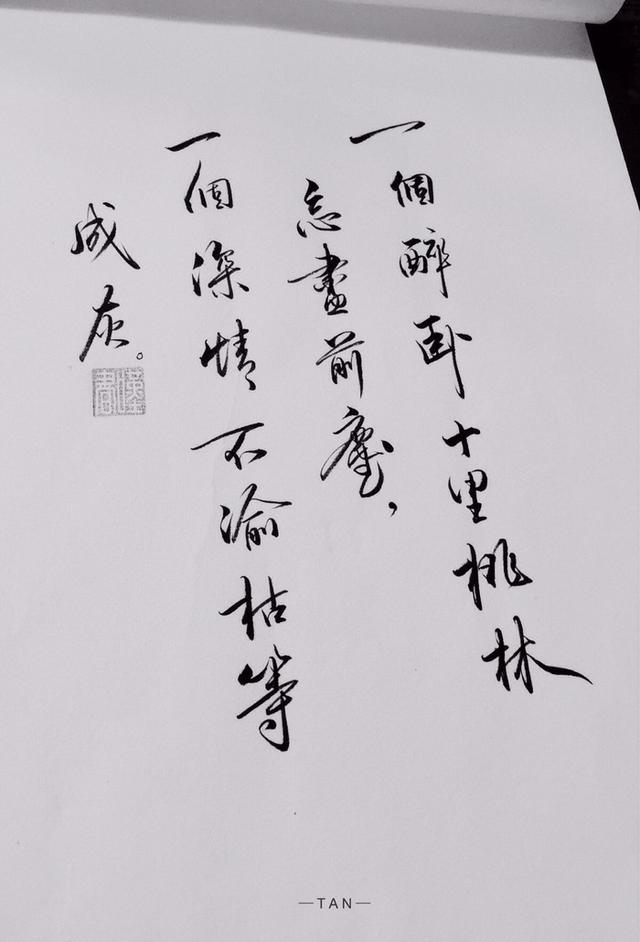 一個醉卧十里桃林
忘盡前塵，
一個深情不渝枯等
成灰。
—TAN—